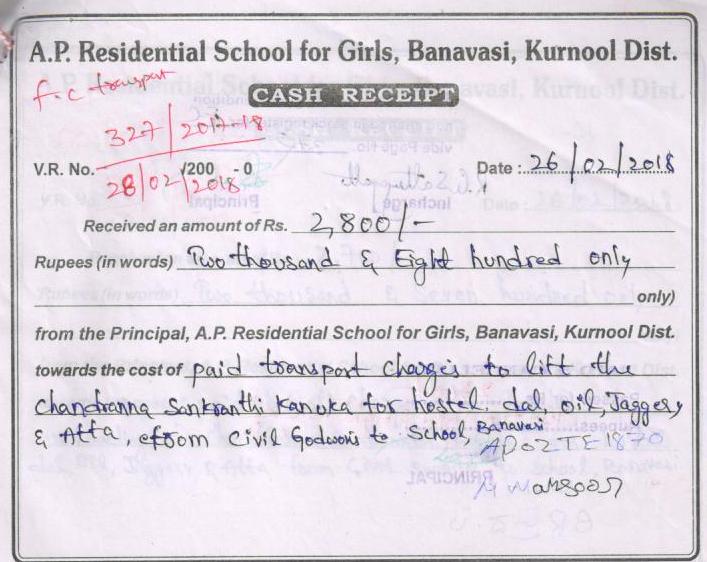 A.P. Residential School for Girls, Banavasi, Kurnool Dist.
f.c transport
CASH RECEIPT
327/2017-18
V.R. No. /200 - 0
28/02/2018
Date : 26/02/2018
Received an amount of Rs. 2,800/-
Rupees (in words) Two thousand & Eight hundred only
only)
from the Principal, A.P. Residential School for Girls, Banavasi, Kurnool Dist.
towards the cost of paid transport charges to lift the
Chandranna Sankranthi Kanuka for hostel dal oil, Jaggery
& Atta from Civil Godwons to School, Banavasi
AP02TE1870